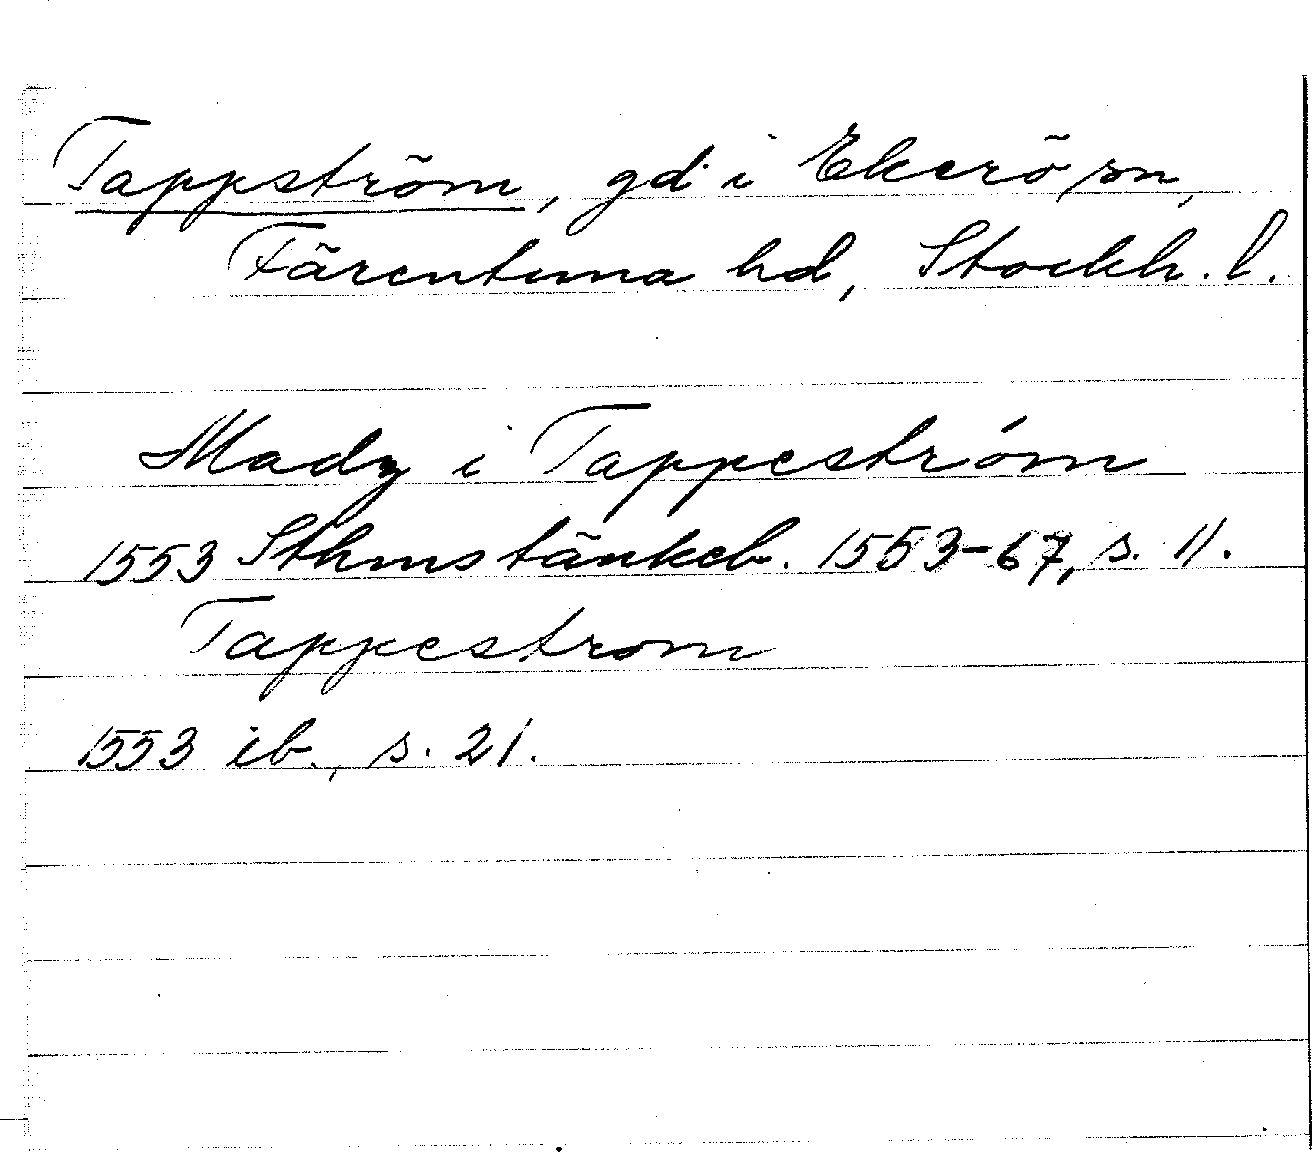 Tappström, gd i Ekerö sn,
Färentuna hd, Stockh. l.
Mady i Tappeström
1553 Sthms tänkeb. 1553-67, s. 11.
Tappestrom
1553 ib., s. 21.